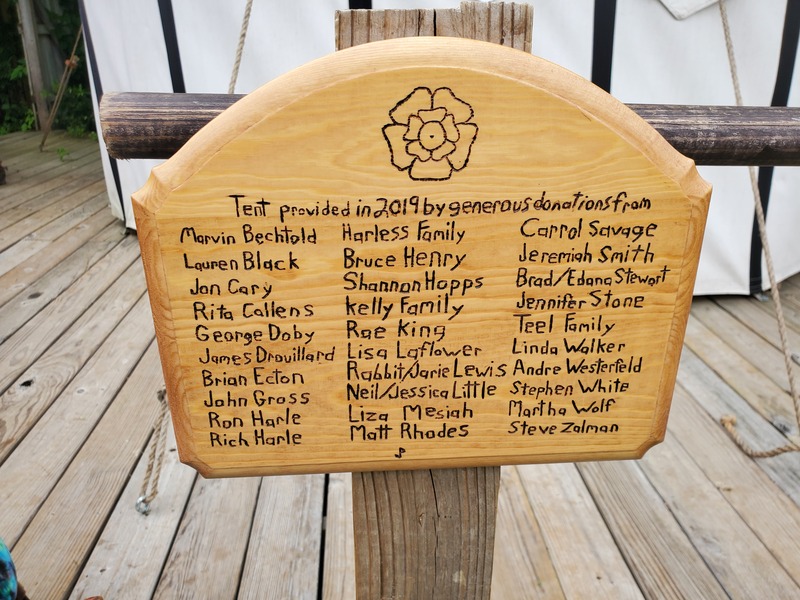 Tent provided in 2019 by generous donations from
Marvin Bechtold
Lauren Black
Jon Cary
Rita Callens
George Doby
James Drouillard
Brian Ecton
John Gross
Ron Harle
Rich Harle
Harless Family
Bruce Henry
Shannon Hopps
Kelly Family
Rae King
Lisa Laflower
Rabbit/Jarie Lewis
Neil/Jessica Little
Liza Mesiah
Matt Rhodes
Carrol Savage
Jeremiah Smith
Brad/Edana Stewart
Jennifer Stone
Teel Family
Linda Walker
Andre Westerfeld
Stephen White
Martha Wolf
Steve Zalman